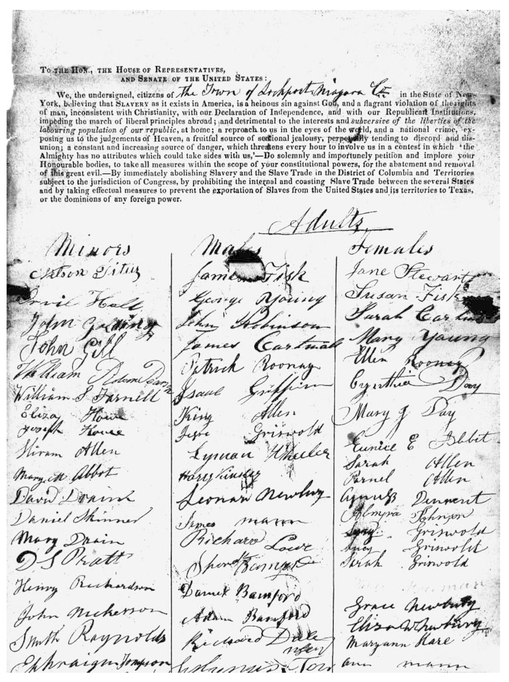 To the Hon., the House of Representatives,
and Senate of the United States:
We, the undersigned, citizens of the Town of Lockport Niagara Co in the State of New-
York, believing that Slavery as it exists in America, is a heinous sin against God, and a flagrant violation of the rights
of man, inconsistent with Christianity, with our Declaration of Independence, and with our Republican Institutions,
impeding the march of liberal principles abroad; and detrimental to the interests and subversive of the liberties of the
labouring population of our republic, at home; a reproach to us in the eyes of the world, and a national crime, 'ex-
posing us to the judgements of Heaven, a fruitful source of sectional jealousy, perpetually tending to discord and dis-
union; a constant and increasing source of danger, which threatens every hour to involve us in a contest in which 'the
Almighty has no attributes which could take sides with us,'—Do solemnly and importunely petition and implore your
Honourable bodies, to take all measures within the scope of your constitutional powers, for the abatement and removal
of this great evil.—By immediately abolishing Slavery and the Slave Trade in the District of Columbia and Territories
subject to the jurisdiction of Congress, by prohibiting the internal and coasting Slave Trade between the several States
and by taking effectual measures to prevent the exportation of Slaves from the United States and its territories to Texas,
or the dominions of any foreign power.
Adults
Minors
Nelson Titus
Hall
John
John Gill
William
William S Farnell
Eliza House
Joseph House
Hiram Allen
Mary M Abbot
David Drain
Daniel Skinner
Mary Drain
D S Pratt
Henry Richardson
John Nickerson
Smith Raynolds
Ephraigm Tompson
Males
James Fisk
George Young
John Robinson
James Cartmell
Patrick Rooney
Isaac Griffin
King Allen
Jesse Griswold
Lyman Wheeler
Harry
Leonard Newbury
James mann
Richard Lowe
Daniel Bamford
Adam Bamford
Richard Dale
Females
Jane Stewart
Susan Fisk
Sarah
Mary Young
Ellen Rooney
Cynthia Day
Mary J Day
Eunice E Abbot
Sarah Allen
Allen
Almyra Johnson
Griswold
Lucy Griswold
Sarah Griswold
Grace Newbury
Eliza W Newbury
Maryann Hare
ann mann